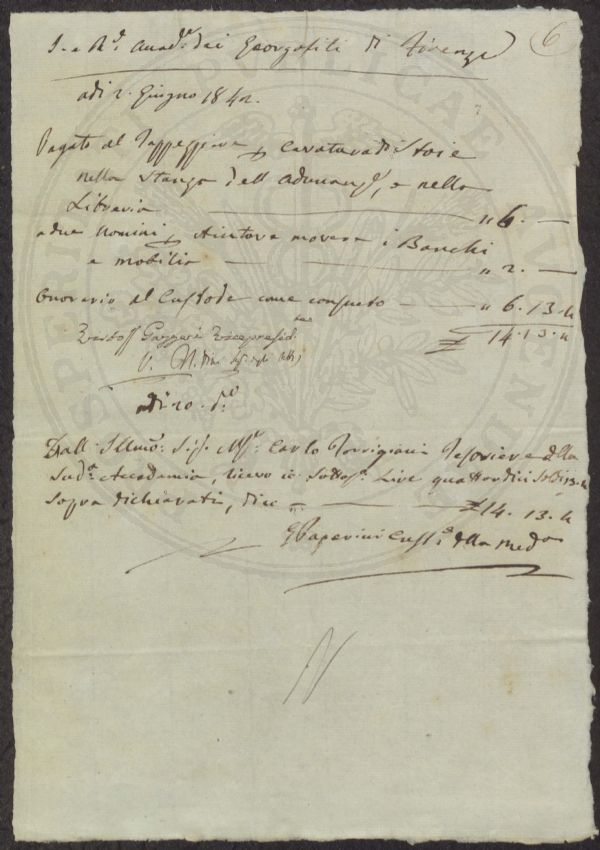 6
I. e R.e Accad.a dei Georgofili di Firenze
adi 2. Giugno 1842.
Pagato al Tappezziere p. levatura di Stoie
nella Stanza dell adunanze, e nella
Libreria — " 6. —
a due Uomini p. Aiutare movere i Banchi
e mobilia — — " 2. —
Onorario al Custode come consueto — " 6. 13. 4
£ 14. 13. 4
Vicepresid.
adi 10. d.o
Dall: Illmo: Sig. Carlo Torrigiani Tesoriere della
Sud.a Accademia, ricevo io Sottos.o Lire quattordici Soldi 13. 4
Sopra dichiarati, dico — £ 14. 13. 4
G Paperini Cust.e della Med.a